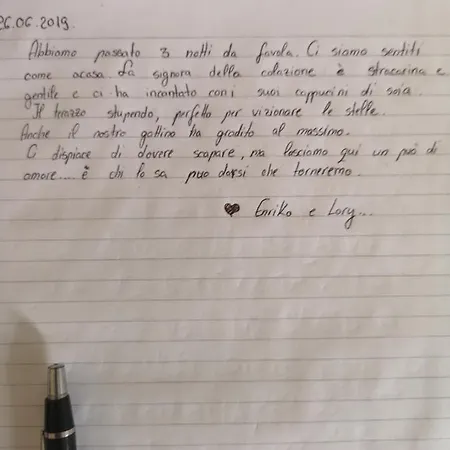 26.06.2019.
Abbiamo passato 3 notti da favola. Ci siamo sentiti
come acasa. La signora della colazione è stracarina e
gentile e ci ha incantato con i suoi cappucini di soia.
Il trazzo stupendo, perfetto per vizionare le stelle.
Anche il nostro gattino ha gradito al massimo.
Ci dispiace di dovere scapare, ma lasciamo qui un pò di
amore.... è chi lo sa puo darsi che torneremo.
♥ Enriko e Lory...